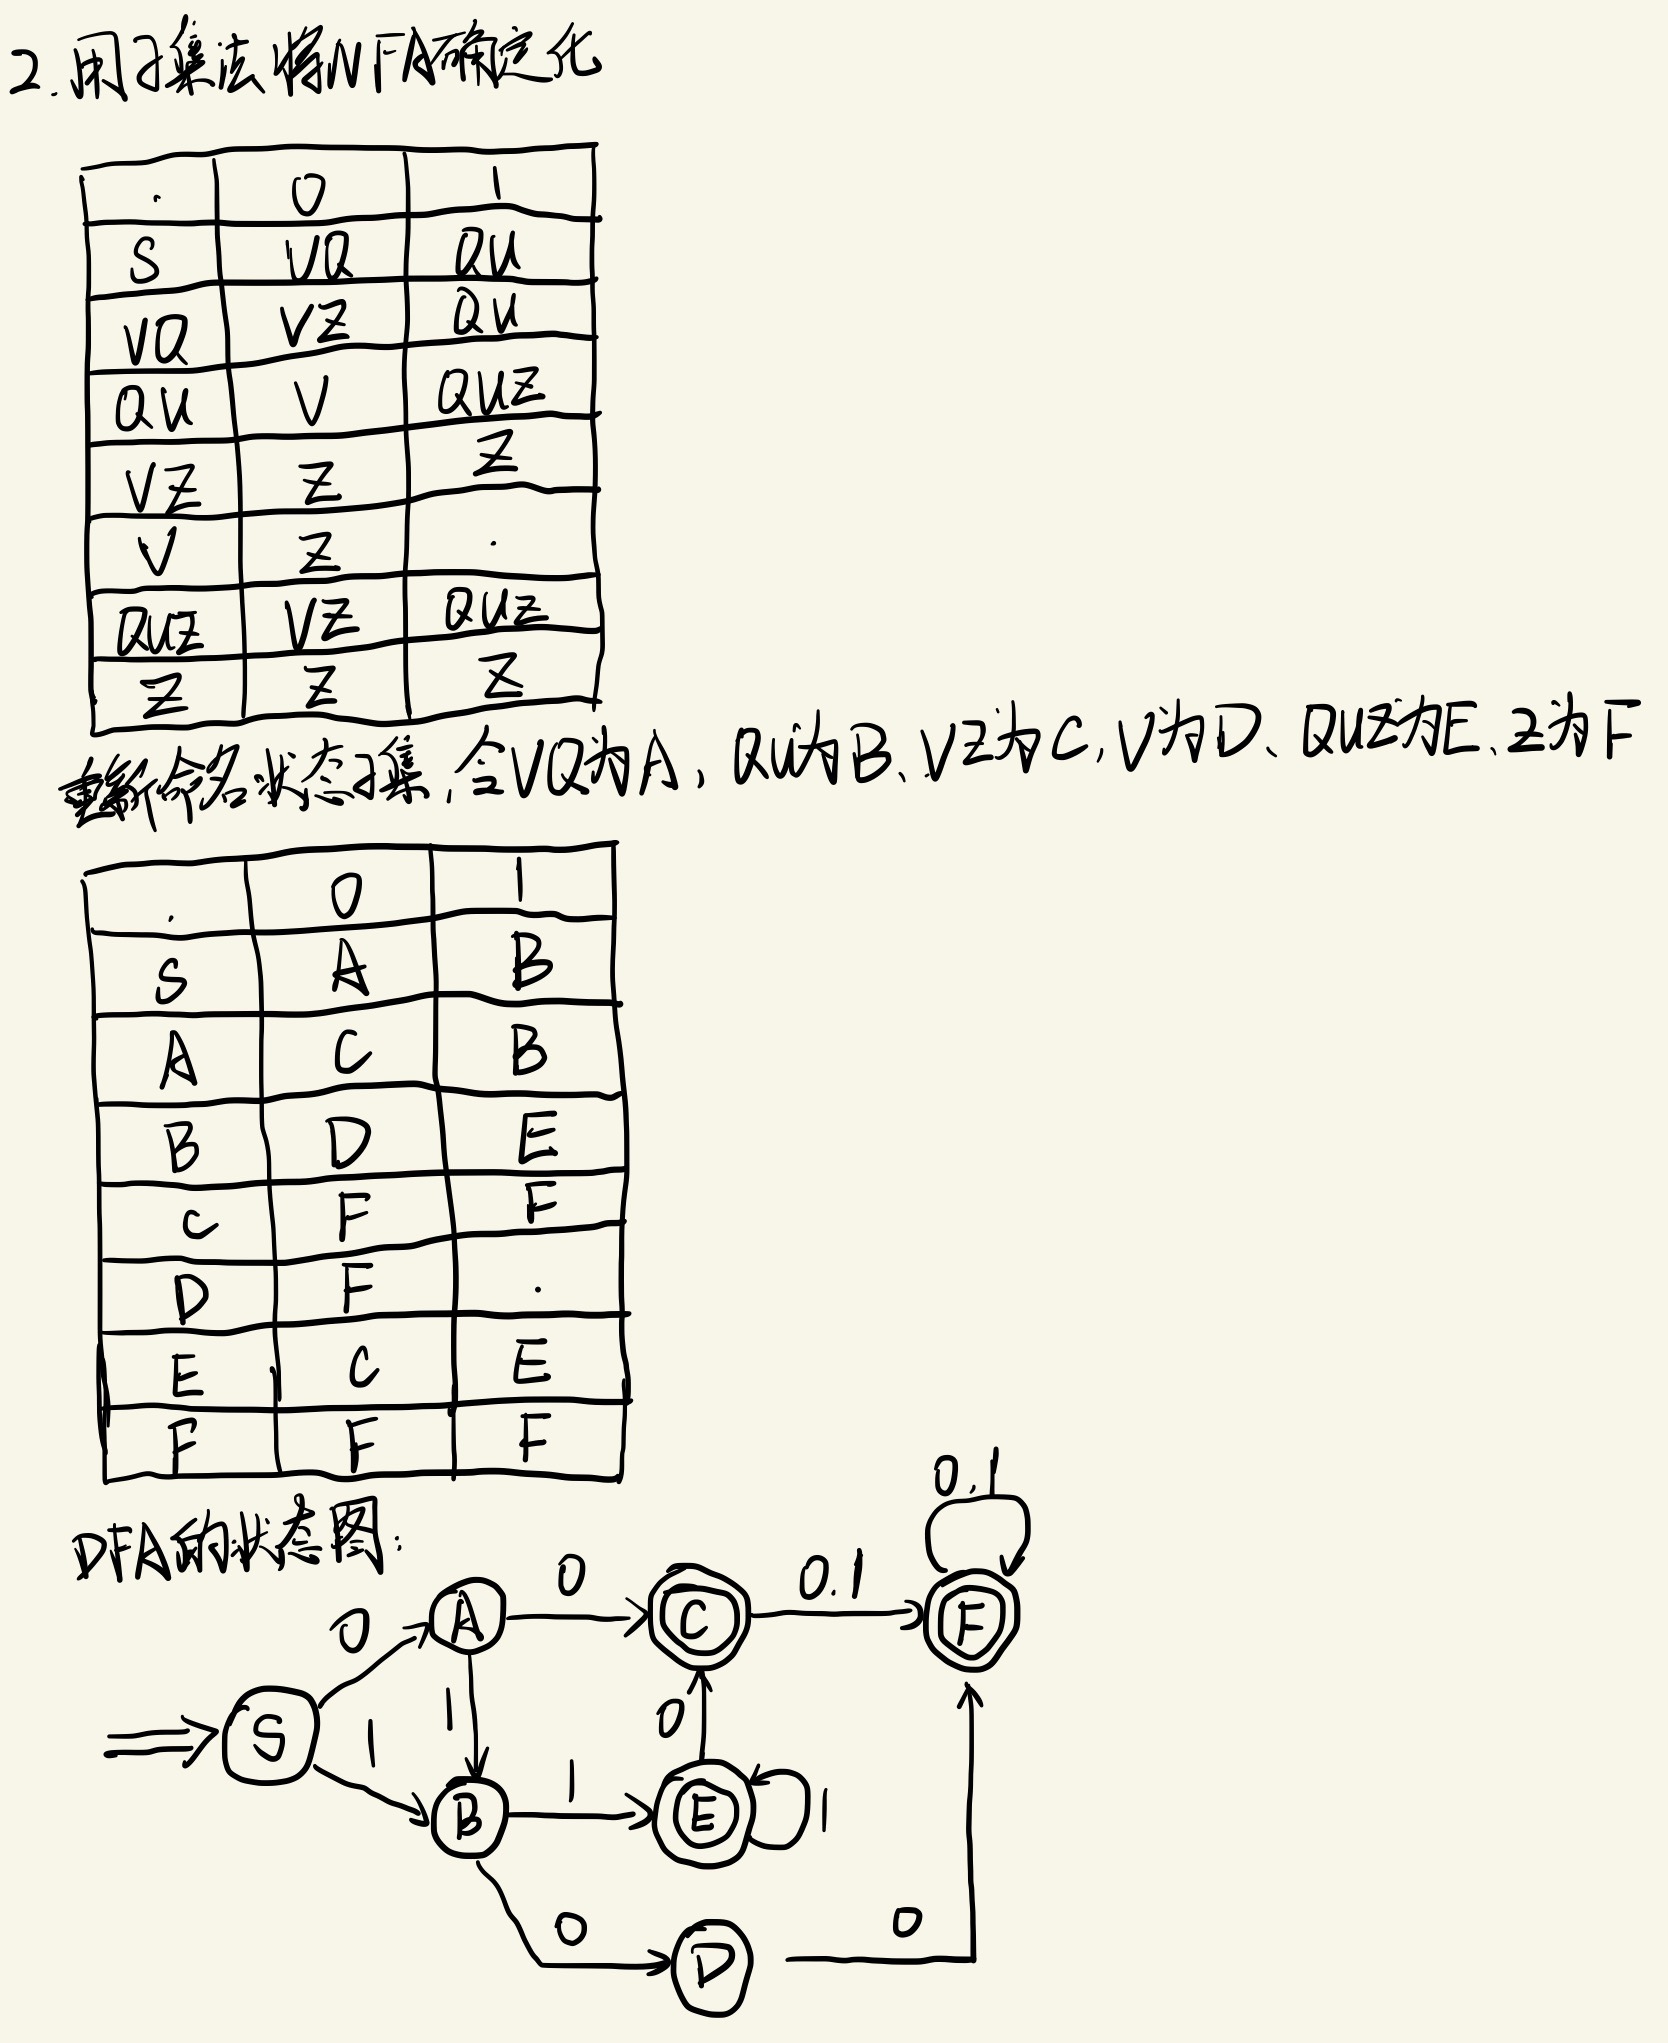 2.用子集法将NFA确定化
. 0 1
S VQ QU
VQ VZ QU
QU V QUZ
VZ Z Z
V Z .
QUZ VZ QUZ
Z Z Z
重新命名状态子集,令VQ为A,QU为B、VZ为C,V为D、QUZ为E、Z为F
. 0 1
S A B
A C B
B D E
C F F
D F .
E C E
F F F
DFA的状态图:
0,1
0 A 0 C 0.1 F
S 1 1 0
B 1 E 1
0 D 0